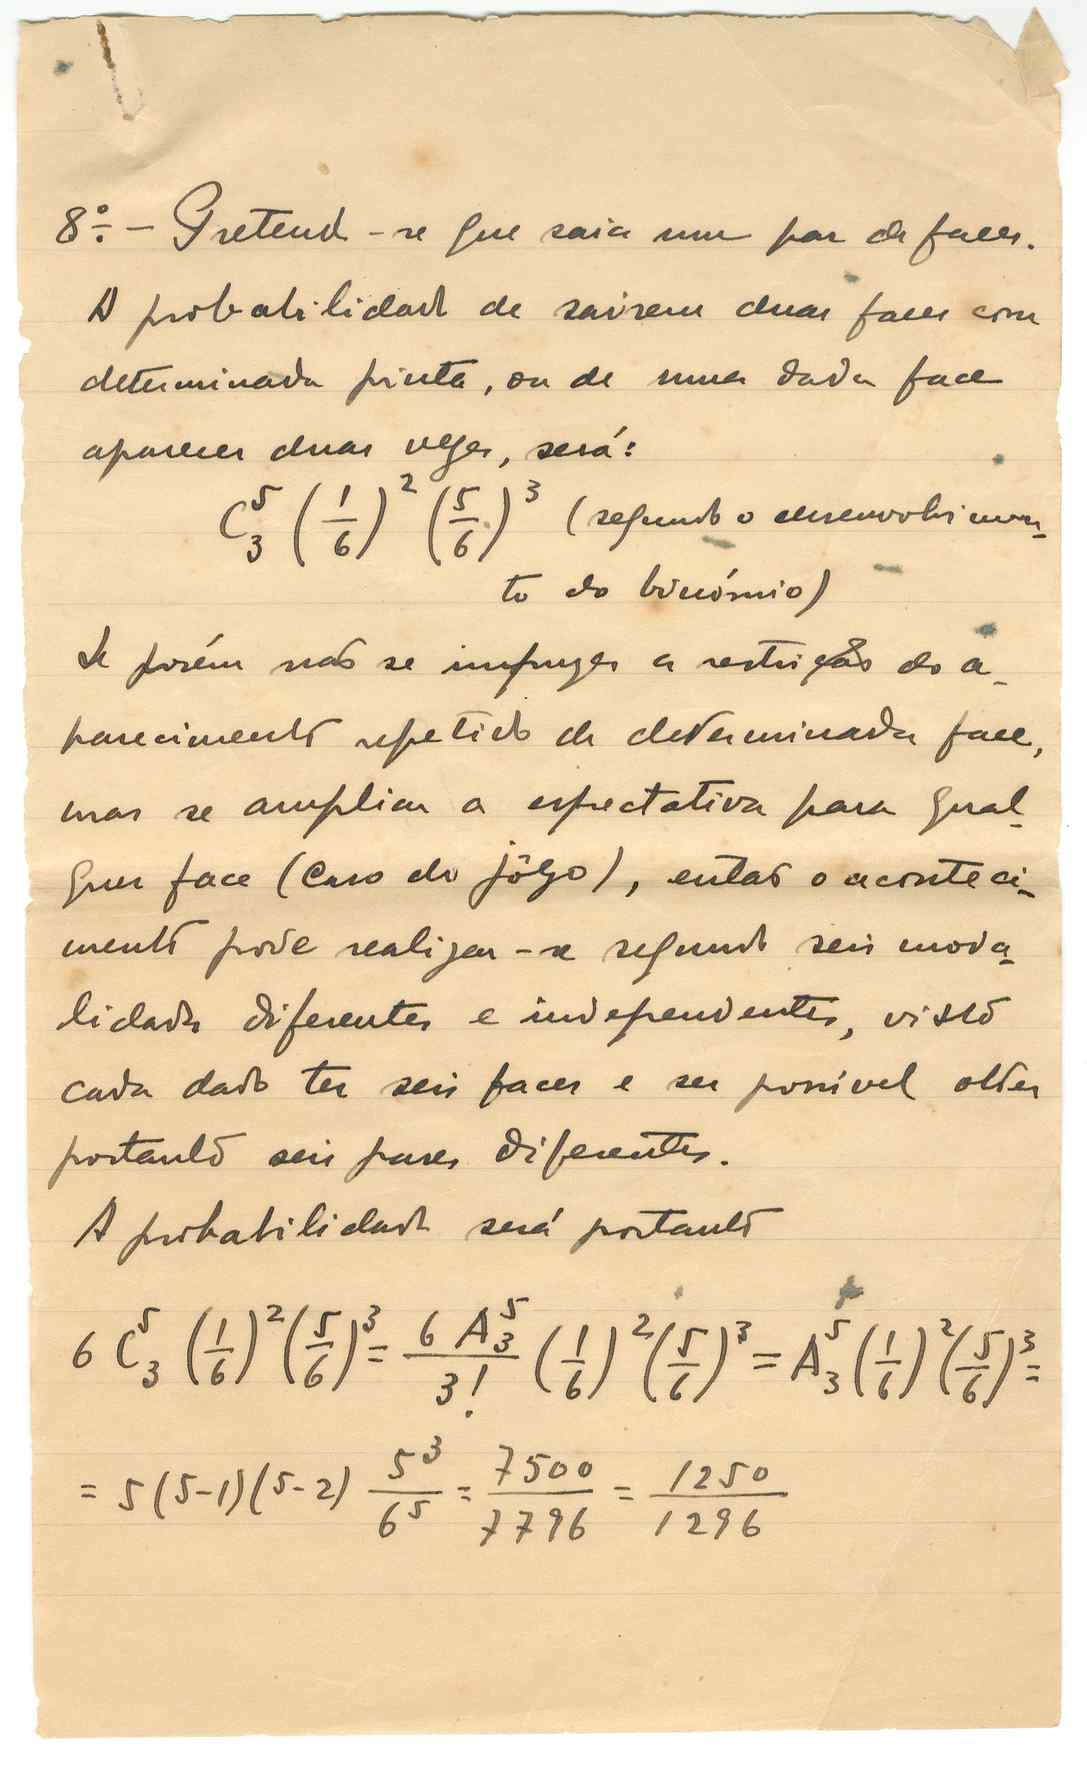 8º - Pretende-se que saia um par de faces.
A probabilidade de sairem duas faces com
determinada pinta, ou de uma dada face
aparecer duas vezes, será:
C⁵₃ (1/6)² (5/6)³ (segundo o desenvolvimen-
to do binómio)
Se porém não se impuzer a restrição do a-
parecimento repetido de determinada face,
mas se ampliar a espectativa para qual-
quer face (caso do jôgo), então o aconteci-
mento pode realizar-se segundo seis moda-
lidades diferentes e independentes, visto
cada dado ter seis faces e ser possível obter
portanto seis pares diferentes.
A probabilidade será portanto
6 C⁵₃ (1/6)² (5/6)³ = 6 A⁵₃/3! (1/6)² (5/6)³ = A⁵₃ (1/6)² (5/6)³ =
= 5(5-1)(5-2) 5³/6⁵ = 7500/7796 = 1250/1296